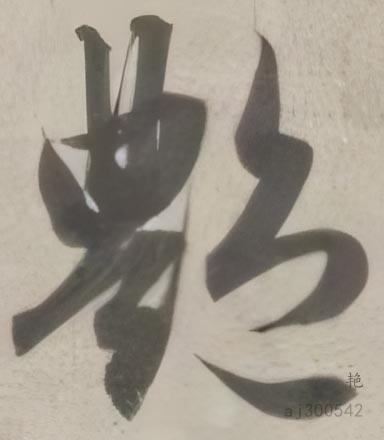 艷
艳
aj300542